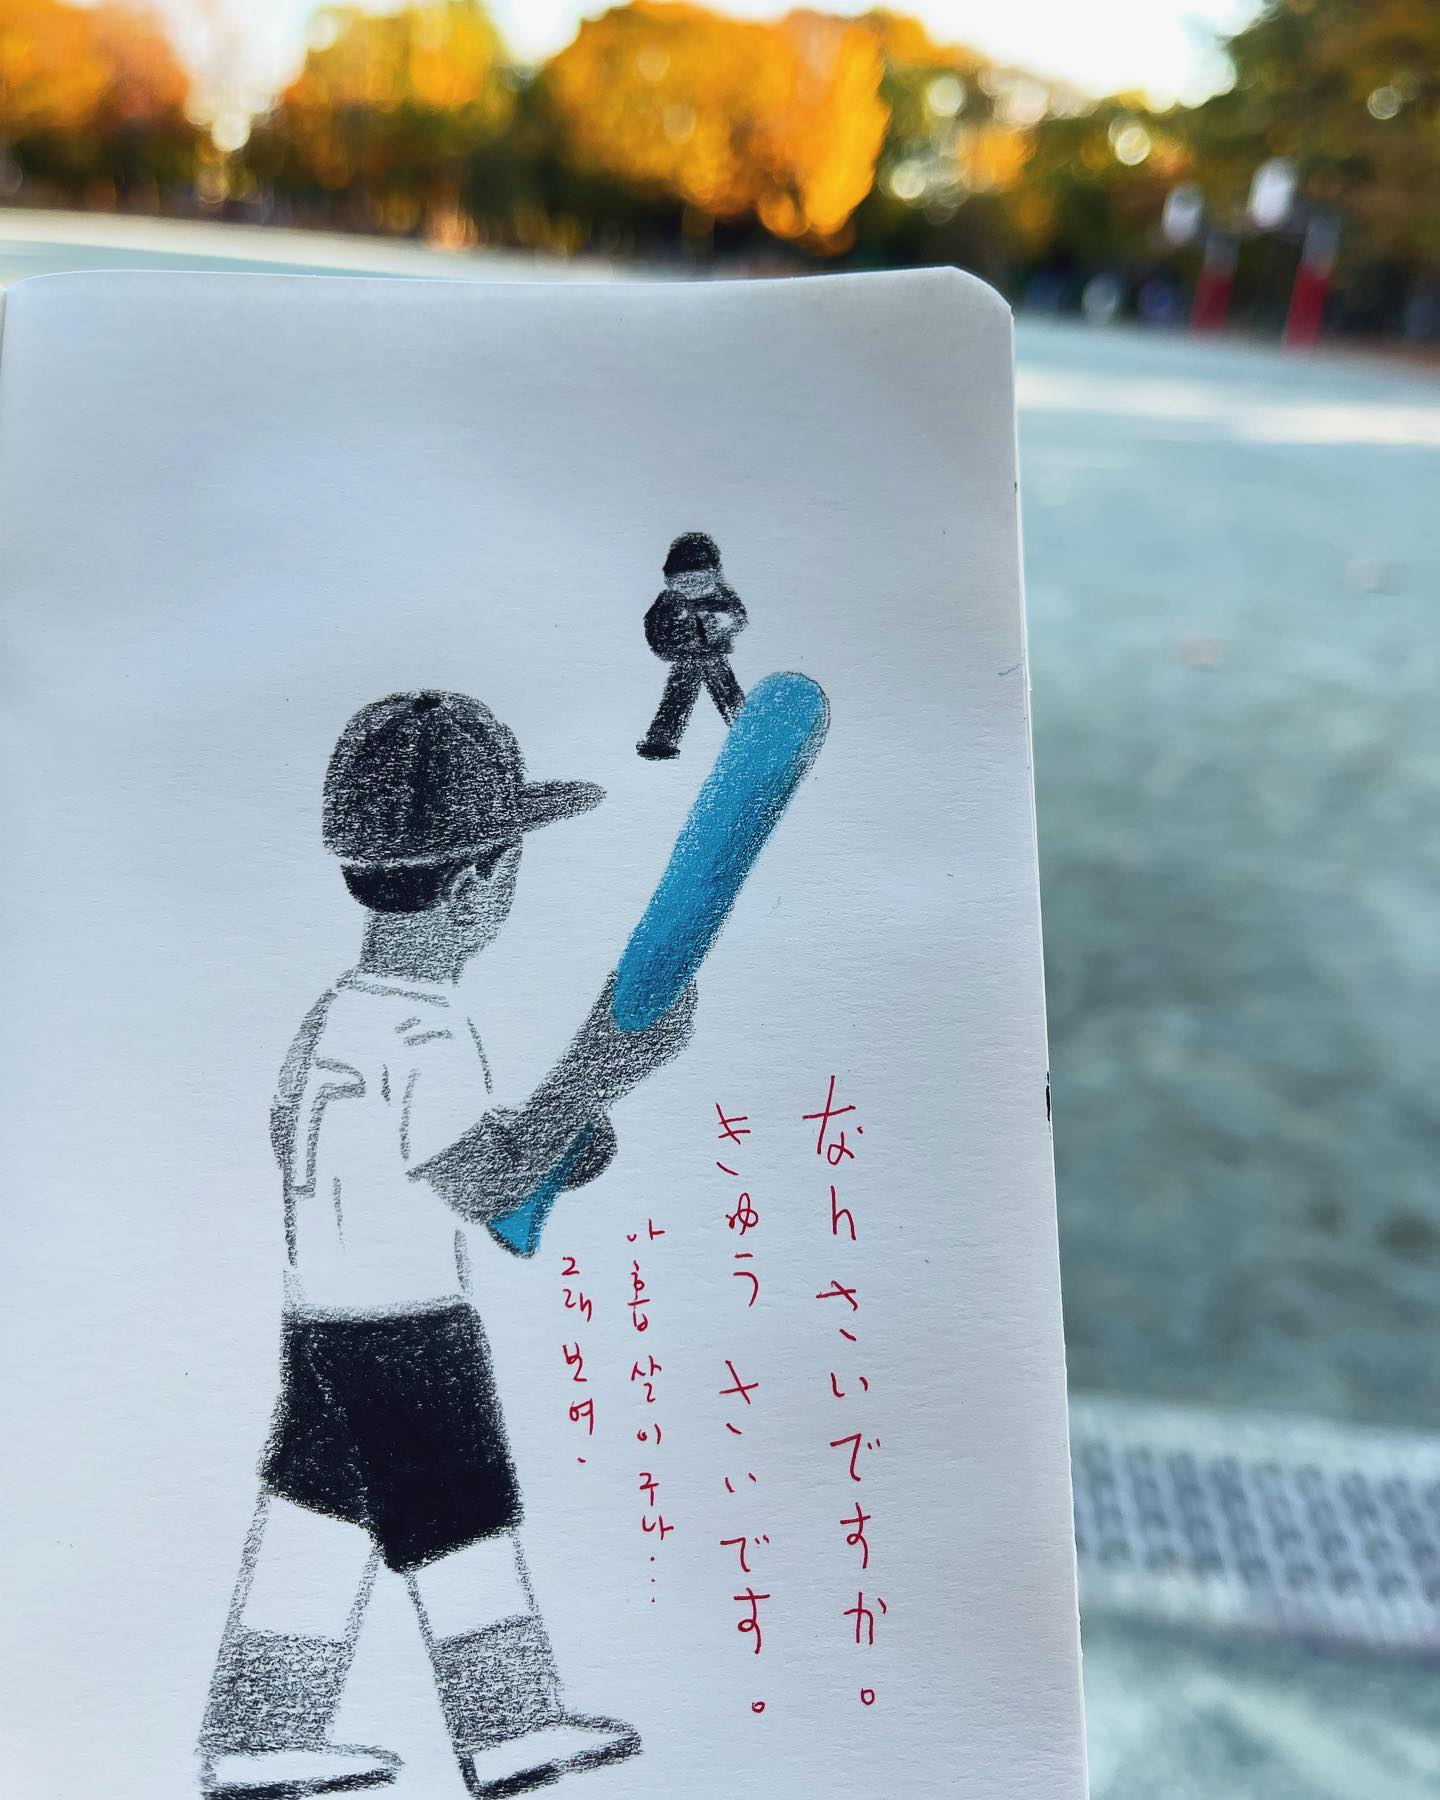 なんさいですか。
きゅうさいです。
아홉살이구나...
그래보여.